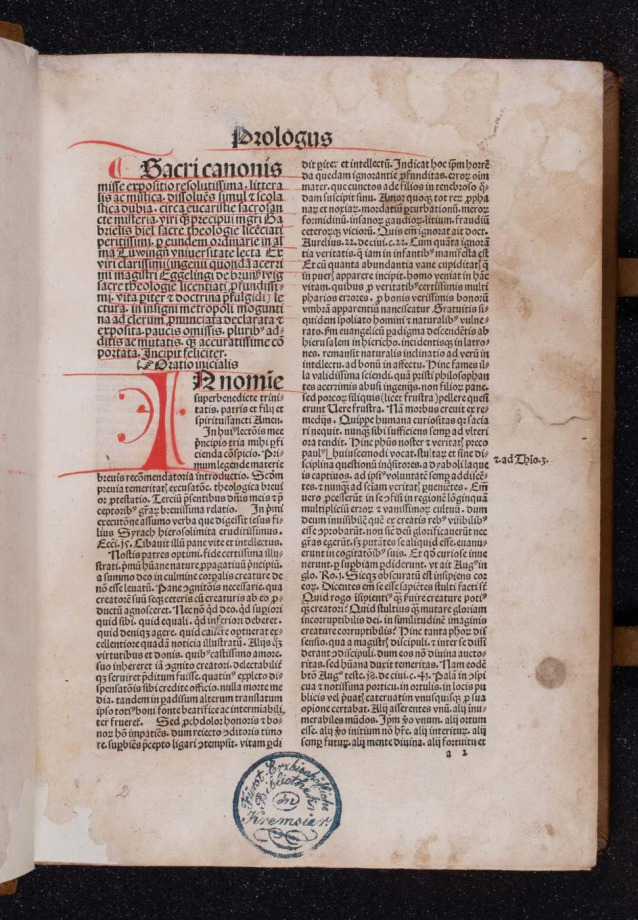 Prologus
Sacri canonis
misse expositio resolutissima. littera
lis ac mistica. dissoluēs simul ⁊ scola
stica dubia. circa eucaristie sacrosan
cte misteria. viri qꝫ precipui mgri Ga
brielis biel sacre theologie licēciati
peritissimi. ꝑ eundem ordinarie in al
ma Tuwingn vniuersitate lecta. Ex
viri clarissimi ingenii quondā acerri
mi magistri Eggelingi de brunswig
sacre theologie licentiati ꝓfundissi
mi. vita ꝑiter ⁊ doctrina p̄fulgidi le
ctura. in insigni metropoli mogunti
na ad clerum ꝓnunciata declarata ⁊
exposita. paucis omissis. pluribꝰ ad
ditis ac mutatis. accuratissime cō
portata. Incipit feliciter.
Oratio inicialis
IN nomīe
superbenedicte trini
tatis. patris et filij et
spiritussancti Amen.
In huiꝰ lectōis mee
pͥncipio tria mihi ꝑfi
cienda cōspicio. Pri
mum legende materie
breuis recomendatoria introductio. Scd̄m
preuia temeritatꝭ excusatōe. theologica breui
or ꝓtestatio. Terciū p̄sentibus dn̄is meis ⁊ p̄
ceptoribꝰ gr̄aꝝ breuissima relatio. In pͥmi
executōne assumo verba que digessit iesus fi
lius Syrach hierosolimita eruditissimus.
Ecci. 15. Cibauit illū pane vite et intellectus.
Nostis patres optimi. fide certissima illu
strati. pͥmū hūane nature ꝓpagatiuū pͥncipiū.
a summo deo in culmine corꝑalis creature de
nō esse leuatū. Pane ꝯgnitōis necessarie. qua
creatorē suū seqꝫ ceteris cū creaturis ab eo ꝓ
ductū agnosceret. Nec nō qd̄ deo. qd̄ suꝑiori
quid sibi. quid equali. qd̄ inferiori deberet.
quid deniqꝫ agere. quid cauere
cellentiore quadā noticia illustratū. Alijs qꝫ
virtutibus et donis. quibꝰ castissimo amore.
suo inhereret iā ꝯgnito creatori. delectabilit̄
qꝫ seruiret p̄ditum fuisse. quatinꝰ expleto di
spensatōis sibi credite officio. nulla morte me
dia. tandem in padisum alterum translatum
ipso totiꝰ boni fonte beatifice ac interminabili
ter frueret̄. Sed ꝓchdolor honoris ⁊ bo
noꝝ hō impatiēs. dum reiecto ꝯditoris timo
re. suꝑbiēs p̄cepto ligari ꝯtempsit. vitam ꝑdi
dit ꝑiter et intellectū. Indicat hoc ip̄m horrē
da quedam ignorantie ꝓfunditas. error oīm
mater. que cunctos ade filios in tenebroso q̄
dam suscipit sinu. Amor quoqꝫ tot reꝝ ꝓpha
naꝝ et noxiaꝝ. mordatiū ꝑturbationū. meroꝝ
formidinū. insanoꝝ gaudioꝝ. litium. fraudiū
ceteroꝝqꝫ vicioꝝ. Quis em̄ ignorat ait doct.
Aurelius. 22. de ciui. c. 22. Cum quāta ignorā
tia veritatis. q̄ iam in infantibꝰ manifesta est
Et cū quanta abundantia vane cupiditatꝭ. q̄
in puerꝭ apparere incipit. homo veniat in hāc
vitam. quibus ꝓ veritatibꝰ certissimis multi
pharios errores. ꝓ bonis verissimis bonorū
vmbrā apparentiū nanciscatur. Gratuitis si
quidem spoliato homini ⁊ naturalibꝰ vulne
rato. fm̄ euangelicū padigma descendētis ab
hierusalem in hiericho. incidentisqꝫ in latro
nes. remansit naturalis inclinatio ad verū in
intellectu. ad bonū in affectu. Hinc fames il
la validissima sciendi. quā prisci philosophan
tes acerrimis abusi ingenijs. non filioꝝ pane.
sed porcoꝝ siliquis (licet frustra) pellere quesi
erunt Uere frustra. Nā morbus creuit ex re
medijs. Quippe humana curiositas qꝝ facia
ri nequit. nunqꝫ sibi sufficiens semꝑ ad vlteri
ora tendit. Hinc phūs noster ⁊ veritatꝭ preco
pauľ huiuscemodi vocat. stultas et sine di
sciplina questionū inq̄sitores. a dyaboli laque
is captiuos. ad ipsiꝰ voluntatē semꝑ addiscē
tes. ⁊ nunqꝫ ad sciam veritatꝭ puenientes. Em̄
uero in regionē lōginquā
multipliciū erroꝝ ⁊ vanissimoꝝ cultuū. dum
deum inuisibilē que ex creatis rebꝰ visibilibꝰ
esse ꝓbarūt. non sic deū glorificauerūt nec
gr̄as egerūt. sꝫ putātes se aliquid esse. euanu
erunt in cogitatōibꝰ suis. Et qd̄ curiose inue
nerunt. ꝑ suꝑbiam ꝑdiderunt. vt ait Augꝰ in
glo. Ro. j. Sicqꝫ obscuratū est insipiens cor
eoꝝ. Dicentes em̄ se esse sapiētes stulti facti sē.
Quid rogo īsipientiꝰ qꝫ seruire creature potiꝰ
qꝫ creatori? Quid stultius qꝫ mutare gloriam
incorruptibilis dei. in similitudinē imaginis
creature corruptibilis? Hinc tanta phoꝝ dis
sensio. qua a magistrꝭ discipuli. ⁊ inter se dissi
derant ꝯdiscipuli. dum eos nō diuina aucto
ritas. sed hūana duxit temeritas. Nam eodē
btō Augꝰ teste. 18. de ciui. c. 41. Palā in ꝯspi
cua ⁊ notissima porticu. in ortulis. in locis pu
blicis vel puatꝭ cateruatim vnusquisqꝫ ꝓ sua
opione certabat. Alij asserentes vnū. alij inu
merabiles mūdos. Ip̄m ꝟo vnum. alij ortum
esse. alij ꝟo initium nō hr̄e. alij interituꝝ. alij
semꝑ futuꝝ. alij mente diuina. alij fortuitu et
⁊. ad Thīo. 3.
a 2
2
Fürst-Erzbischöfliche
Bibliothek
in
Kremsier.